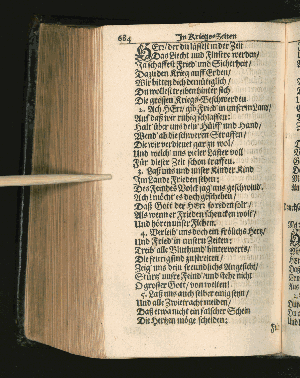 684 In Kriegs-Zeiten
HErr/der du lässest in der Zeit
Das Liecht und Finstre werden/
Ja schaffest Fried und Sicherheit/
Dazu den Krieg auff Erden/
Wir bitten dich demütiglich/
Du wollest treiben hinter sich
Die grossen Kriegs-Beschwerden.
2. Ach HErr/ gib Fried in unserm Land/
Auf daß wir ruhig schlaffen:
Halt über uns dein Hülff und Hand/
Wend ab die schweren Straffen/
Die wir verdienet gar zu wol/
Und welch' uns vieler Laster voll
Für dieser Zeit schon traffen.
3. Laß uns und unser Kinder Kind
Im Lande Frieden sehen:
Des Feindes Volck jag' uns geschwind/
Ach möcht' es doch geschehen/
Daß Gott der HErr so redet
Als wenn er Frieden schencken wolt/
Und hören unser Flehen.
4. Verleih' uns doch ein frölichs Hertz/
Und Fried' in unsern Zeiten:
Treib' alle Bluthund' hinterwerts/
Die stets gesinnt zu streiten/
Zeig' uns dein freundlichs Angesicht/
Stürtz' unsre Feind/ und siehe nicht
O grosser Gott/ von weiten!
5. Laß uns auch selber einig seyn/
Und alle Zwietracht meiden/
Daß etwa nicht ein falscher Schein
Die Hertzen möge scheiden: